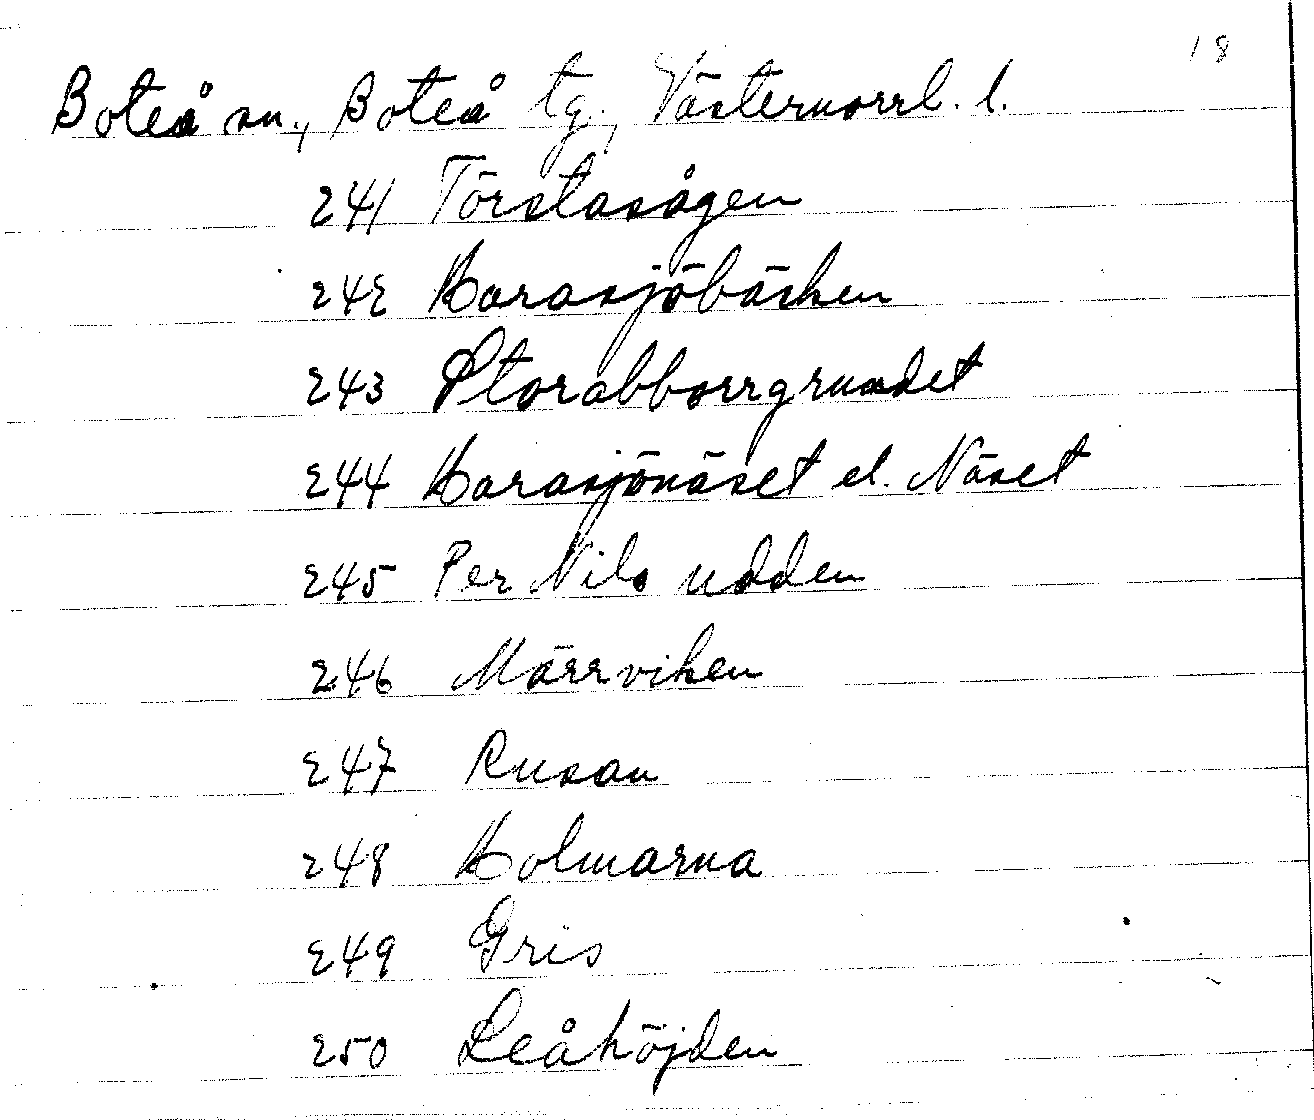 18
Boteå sn., Boteå tg., Västernorrl. l.
241 Törstasågen
242 Harasjöbäcken
243 Storabborrgrundet
244 Harasjönäset el. Näset
245 Per Nils udden
246 Märrviken
247 Rusan
248 Holmarna
249 Gris
250 Leåhöjden